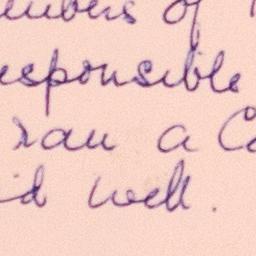 mbers of
esponsible
ran a C
id well.